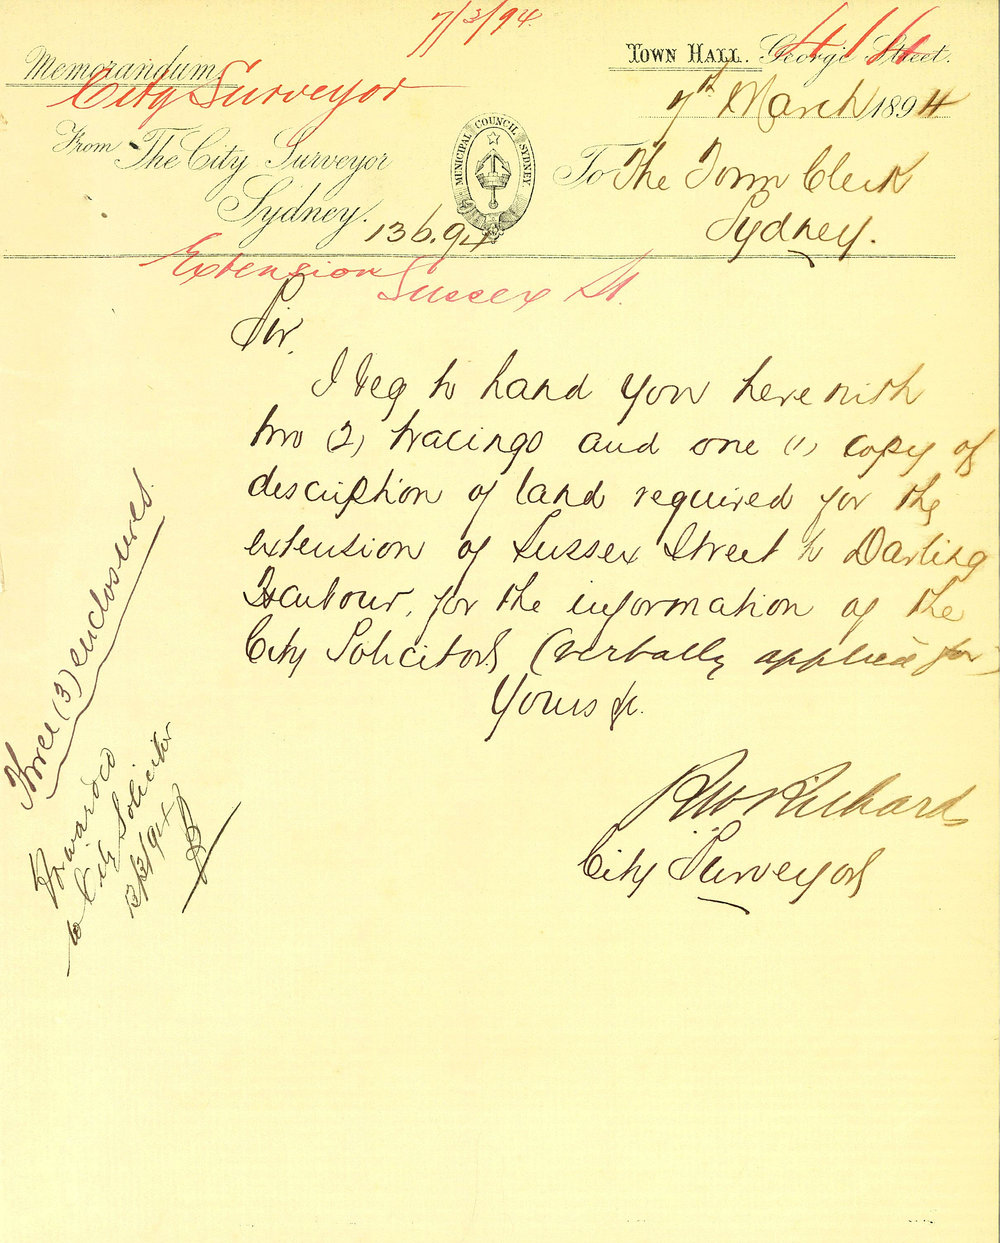 7/3/94.
416
Memorandum.
City Surveyor
TOWN HALL. George Street.
7th March 1894
From The City Surveyor
Sydney.
MUNICIPAL COUNCIL SYDNEY.
To The Town Clerk
Sydney.
136.94
Extension Sussex St.
Sir,
I beg to hand you herewith
two (2) tracings and one (1) copy of
description of land required for the
extension of Sussex Street to Darling
Harbour, for the information of the
City Solicitor (verbally applied for)
Yours &c.
RW Richards
City Surveyor
Three (3) enclosures.
Forwarded
to City Solicitor
12/3/94